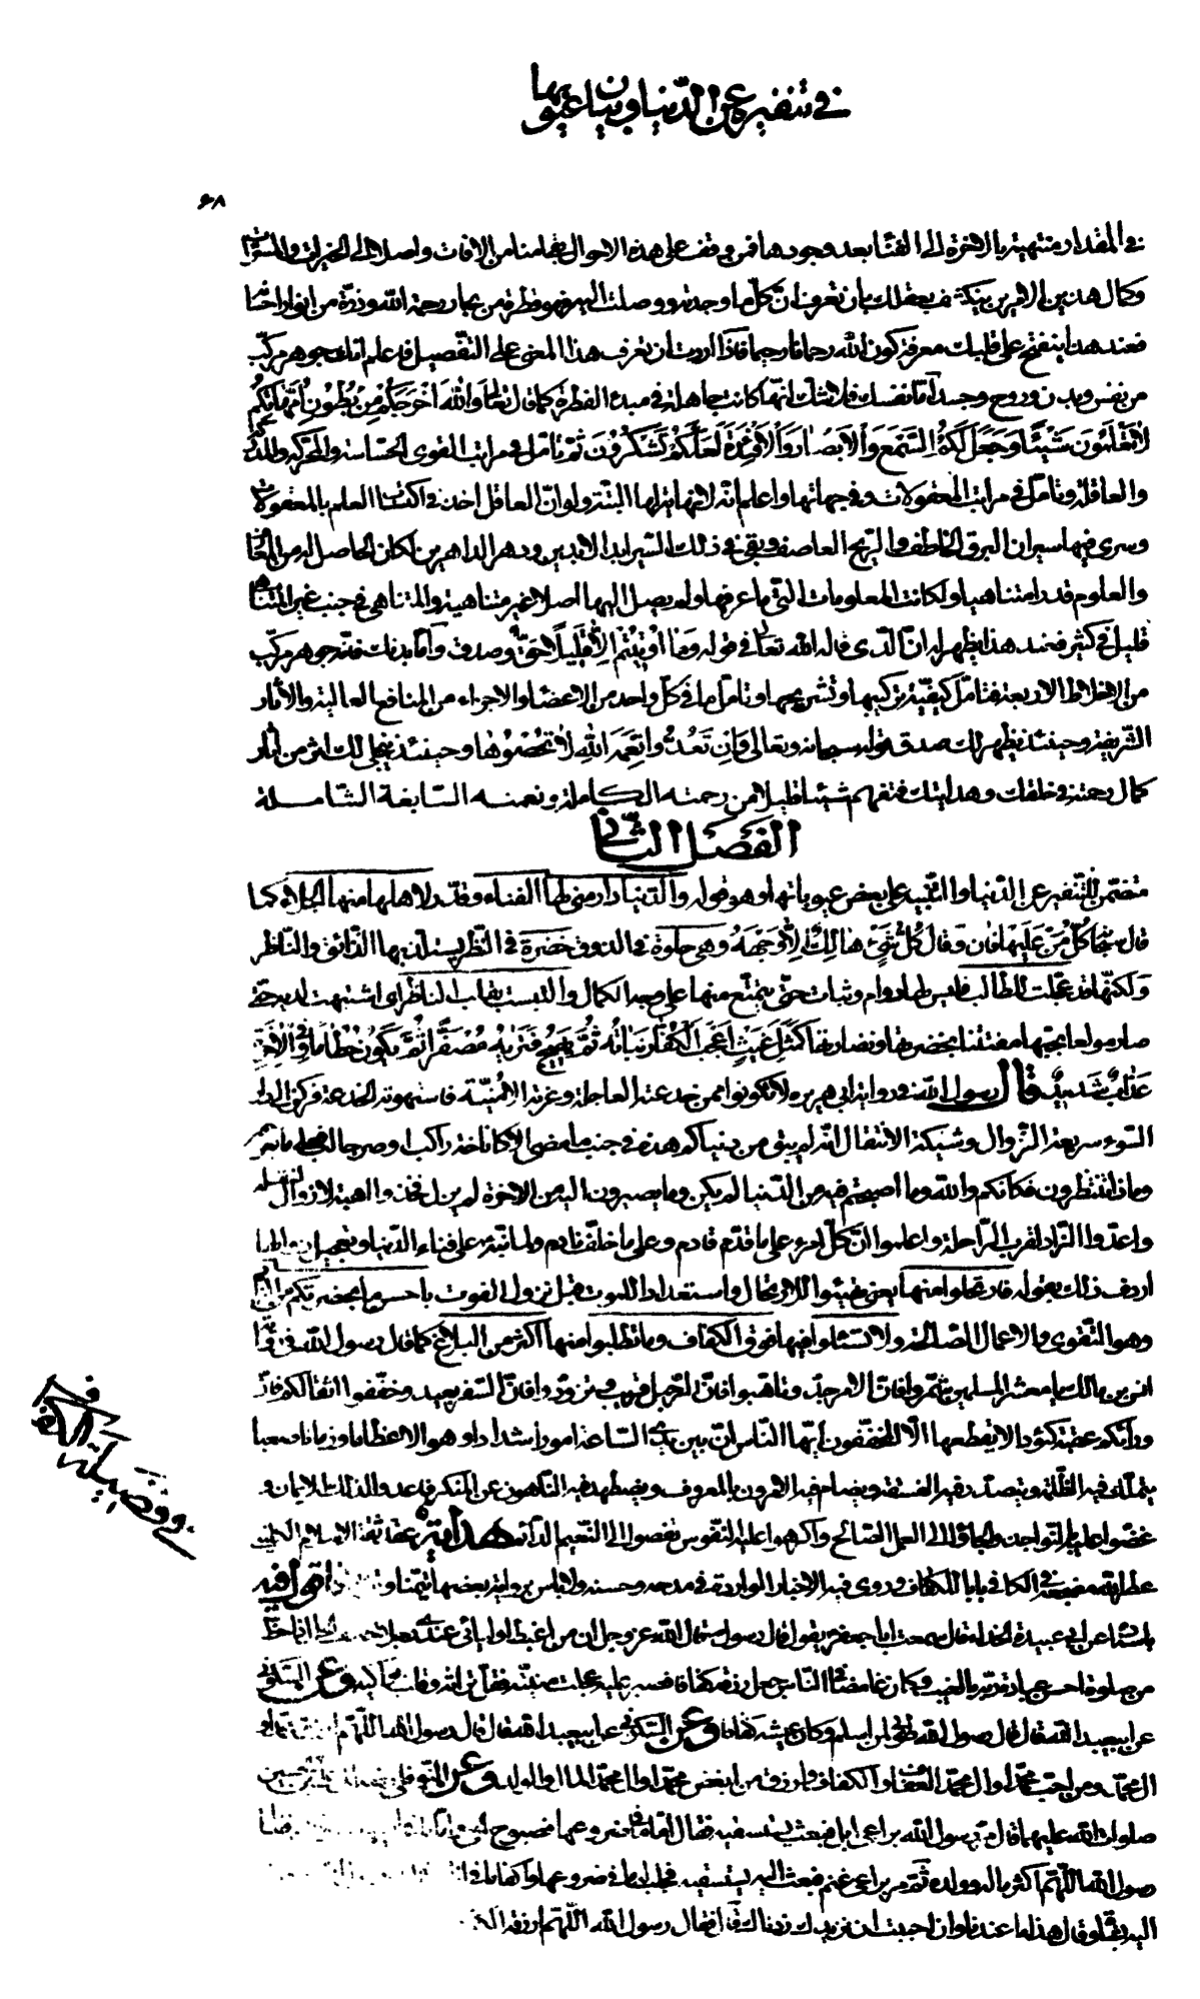 في تنفيره عن الدّنيا وبيان عيوبها
۶۸
في المقدار منتهية بالاخرة الى الفنا بعد وجودها فمن وقف على هذه الاحوال بقى امنا من الافات واصلا الى الخيرات والمسرّات
وكمال هذين الامرين ينكشف بعقلك بان تعرف انّ كلّ ما وجدته ووصلت اليه فهو قطرة من بحار رحمة الله وذرّة من انوار احسا
فعند هذا ينفتح على قلبك معرفة كون الله رحمانا رحيما فاذا اردت ان تعرف هذا المعنى على التفصيل فاعلم انك جوهر مركّب
من نفس وبدن وروح وجسد امّا نفسك فلا شك انّها كانت جاهلة في مبدء الفطرة كما قال تعالى وَاللهُ اَخْرَجَكُمْ مِنْ بُطُونِ اُمَّهاتِكُمْ
لا تَعْلَمُونَ شَيْئًا وَجَعَلَ لَكُمُ السَّمْعَ وَالاَبْصارَ وَالاَفْئِدَةَ لَعَلَّكُمْ تَشْكُرُونَ ثمّ تامّل في مراتب القوى الحسّاسة والمحرّكة والمدركة
والعاقلة وتامّل في مراتب المعقولات وفي جهاتها واعلم انّه لا نهاية لها البتّة ولو انّ العاقل اخذ في اكتساب العلم بالمعقولات
وسرى فيها سيران البرق الخاطف والرّيح العاصف وبقى في ذلك السّير ابد الابدين ودهر الداهرين لكان الحاصل له من المعارف
والعلوم قدرا متناهيا ولكانت المعلومات التي ما عرفها ولم يصل اليها اصلا غير متناهية والمتناهي في جنب غير المتناهي
قليل في كثير فعند هذا يظهر له انّ الّذي قاله الله تعالى في قوله وَما اُوتِيتُمْ مِنَ الْعِلْمِ اِلّا قَلِيلاً حقّ وصدق وامّا بدنك فهو جوهر مركّب
من الاخلاط الاربعة فتامّل كيفيّة تركيبها وتشريحها وتامّل ما في كلّ واحد من الاعضا والاجزاء من المنافع العالية والاثار
الشّريفة وحينئذ يظهر لك صدق قوله سبحانه وتعالى وَاِنْ تَعُدُّوا نِعْمَةَ اللهِ لا تُحْصُوها وحينئذ ينجلي لك اثر من اثار
كمال رحمته في خلقك وهدايتك فتفهم شيئا قليلا من رحمته الكاملة ونعمته السّابغة الشّاملة
الفصل الثّاني
متضمّن للتّنفير عن الدّنيا والتّنبيه على بعض عيوباتها وهو قوله والدّنيا دار مني لها الفناء وقدّر لاهلها منها الجلاء كما
قال سبحانه كُلُّ مَنْ عَلَيْها فانٍ وقال كُلُّ شَيْءٍ هالِكٌ اِلّا وَجْهَهُ وهي حلوة في الذوق خضرة في النّظر يستلذّ بها الذّائق والنّاظر
وَلكنّها قد عجّلت للطّالب فليس لها دوام وثبات حتّى يتمتّع منها على وجه الكمال والتبست بقلب النّاظر اى اشتبهت لديه حتّى
صار مولعا بحبّها مفتتنا بخضرتها ونضارتها كَمَثَلِ غَيْثٍ اَعْجَبَ الْكُفّارَ نَباتُهُ ثُمَّ يَهِيجُ فَتَريهُ مُصْفَرًّا ثُمَّ يَكُونُ حُطامًا وَفِي الاخِرَةِ
عَذابٌ شَدِيدٌ قال رسول الله في رواية ابي هريرة لا تكونوا ممن خدعته العاجلة وغرّته الامنيّة فاستهوته الخدعة فركن الى دار
السّوء سريعة الزّوال وشيكة الانتقال انّه لم يبق من دنياكم هذه في جنب ما مضى الّا كاناخة راكب او صرّ حالب فعلى ما تعرّجون
وما ذا تنتظرون فكانكم والله وما اصبحتم فيه من الدّنيا لم يكن وما يصيرون اليه من الاخرة لم يزل فخذوا اهبة لازوال لنقله
واعدّوا الزّاد لقرب الرّاحلة واعلموا انّ كلّ امرء على ما قدّم قادم وعلى ما خلّف نادم ولمّا نبّه على فناء الدّنيا
اردف ذلك بقوله فارتحلوا منها يعني تهيّئوا للارتحال واستعدادا للموت قبل نزول الفوت باحسن ما بحضرتكم من الزّاد
وهو التّقوى والاعمال الصّالحة ولا تسئلوا فيها فوق الكفاف وما تطلبوا منها اكثر من البلاغ كما قال رسول الله في رواية
انس بن مالك يا معشر المسلمين شمّروا فانّ الامر جدّ وتاهّبوا فانّ الرّحيل قريب وتزوّدوا فانّ السّفر بعيد وخفّفوا اثقالكم فانّ
ورائكم عقبة كئودا لا يقطعها الّا المخفّفون ايّها النّاس انّ بين يدى السّاعة امورا شدادا واهوالا عظاما وزمانا صعبا
يتملّك فيه الظّلمة ويتصدّر فيه الفسقة ويضام فيه الامرون بالمعروف ويضطهد فيه النّاهون عن المنكر فاعدّوا لذلك الايمان و
عضّوا عليه بالنّواجذ والجاؤا الى العمل الصّالح واكرهوا عليه النّفوس تفضوا الى النّعيم الدّائم هداية عقد ثقة الاسلام الكليني
عطر الله مضجعه في الكافي بابا للكفاف وروى فيه الاخبار الواردة في مدحه وحسنه ولا باس برواية بعضها تيمّنا
باسناده عن ابي عبيدة الحذاء قال سمعت ابا جعفر يقول قال رسول الله قال الله عزّ وجلّ ان من اغبط اوليائي عندى
من صلوة احسن عبادة ربّه بالغيب وكان غامضا في النّاس جعل رزقه كفافا فصبر عليه عجلت منيّته فقلّ تراثه وقلّت بواكيه وعن السّكوني
عن ابيعبد الله قال قال رسول الله طوبى لمن اسلم وكان عيشه كفافا وعن السّكوني عن ابيعبد الله قال قال رسول الله اللّهم
ال محمّد ومن احبّ محمّدا وال محمّد العفاف والكفاف وارزق من ابغض محمّدا وال محمّد المال والولد وعن النّوفلي
صلوات الله عليهما قال مرّ رسول الله براعي ابل فبعث يستسقيه فقال امّا ما في ضروعها فصبوح الحيّ وامّا
رسول الله اللّهم اكثر ماله وولده ثمّ مرّ براعي غنم فبعث اليه يستسقيه فحلب له ما في ضروعها واكفا ما في
اليه بشاة وقال هذا ما عندنا وان احببت ان نزيدك زدناك قال فقال رسول الله اللّهم ارزقه
في فضيلة الكفاف